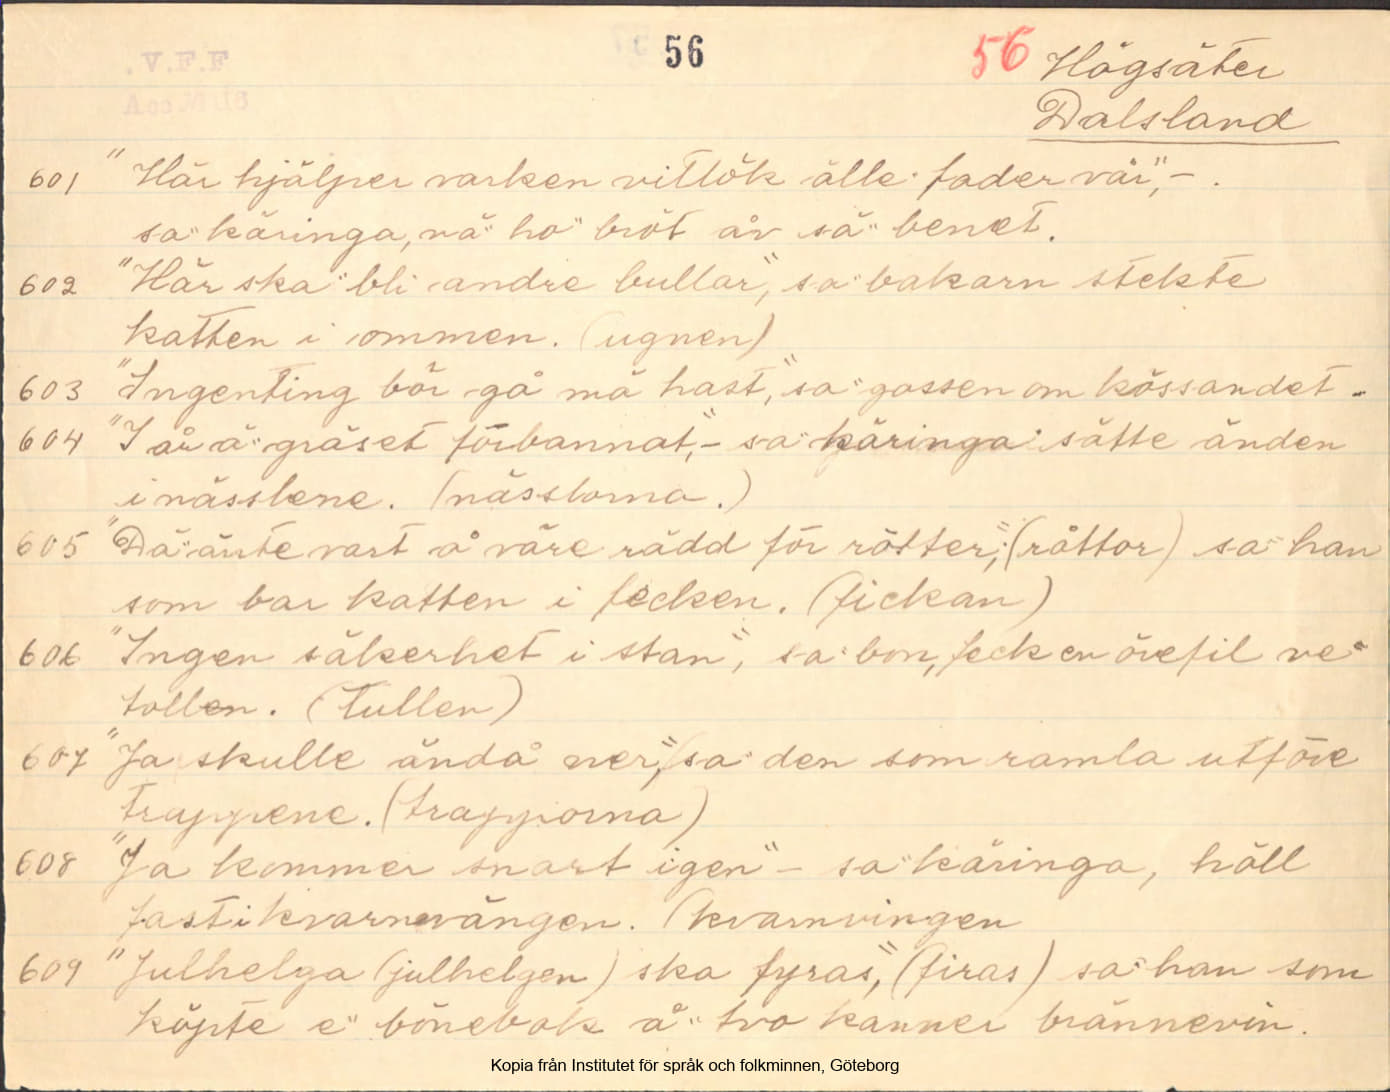 56
56 Högsäter
Dalsland
601 "Här hjälper varken vitlök älle fader vår", - .
sa käringa, nä ho bröt åv sä benet.
602 "Här ska bli andre bullar", sa bakarn stekte
katten i ommen. (ugnen)
603 "Ingenting bör gå mä hast," sa gossen om kössandet.
604 "I år ä gräset förbannat", - sa käringa sätte änden
i nässlene. (nässlorna.)
605 "Dä änte vart å väre rädd för rötter", (råttor) sa han
som bar katten i fecken. (fickan)
606 "Ingen säkerhet i stan", sa bon, feck en örefil ve
tollen. (Tullen)
607 "Ja skulle ändå ner", sa den som ramla utföre
trappene. (trapporna)
608 "Ja kommer snart igen" - sa käringa, höll
fast i kvarnevängen. (kvarnvingen
609 "Julhelga (julhelgen) ska fyras", (firas) sa han som
köpte e bönebok å två kanner brännevin.
Kopia från Institutet för språk och folkminnen, Göteborg